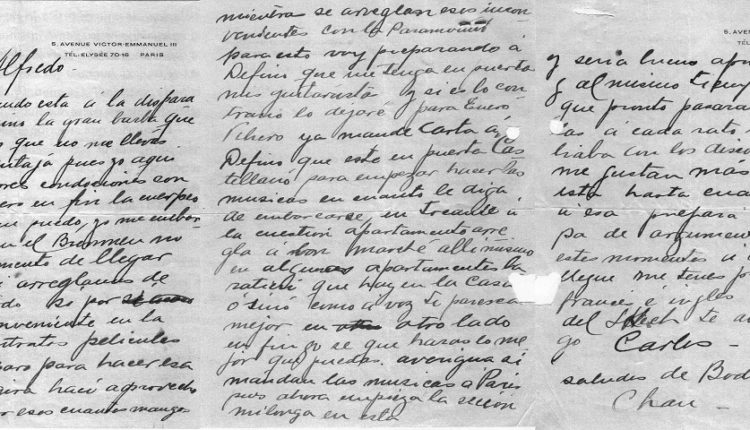 5, AVENUE VICTOR-EMMANUEL III
TÉL: ELYSÉE 70-16 PARIS
Alfredo
ndo esta á la dispara
ino la gran barba que
s que no me lleves
ntaja pues yo aqui
res condisiones con
ero en fin la cuerpeo
ue puedo, yo me embar
n el Bremmen no
mento de llegar
arreglamos de
do so por
nveniente en la
ntratos peliculas
aro para hacer esa
aira hací aprovecho
or esos cuantos mangos
mientra se arreglan esos incon
venientes con la Paramount
para esto voy preparando á
Defino que me tenga en puerta
mis guitarrista y si es lo con
trario lo dejaré para Enero
Febrero ya mande Carta á
Defino que este en puerta Cas
tellano para empezar hacer las
musicas en cuanto le diga
de embarcarse, en trocante á
la cuestion apartamento arre
gla á bon marché alli mismo
en algunos apartamentes ba
ratieri que hay en la Casa
ó sinó como a voz ti paresca
mejor. en otro lado
en fin yo se que haras lo me
jor que puedas. averigua si
mandan las musicas á Paris
pues ahora empieza la sesion
milonga en esta
5, AVEN
TÉL
y seria bueno apro
y al mismo tiemp
que pronto pasara
ias á cada rato,
biaba con los disco
me gustan más
ista hasta cua
á esa prepara
pa de argumen
estos momentos a
llegue me tenes p
francé é inglés
del te a
go Carlos -
saludes de Bod
Chau -